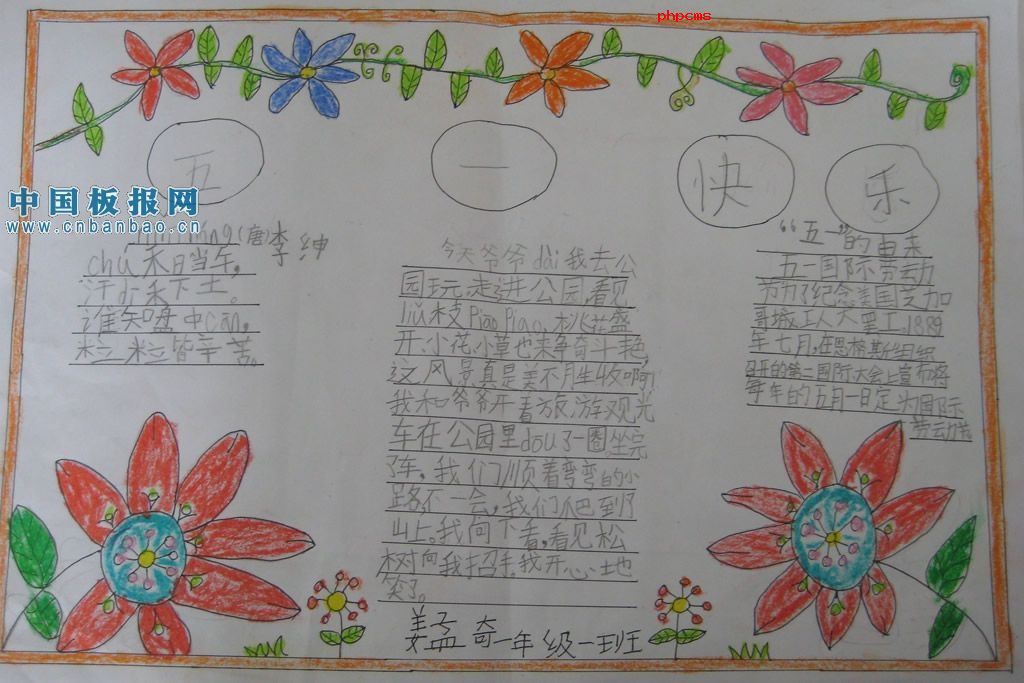 phpcms
五 一 快 乐
中国板报网
www.cnbanbao.cn
(唐)李绅
chú禾日当午,
汗di禾下土。
谁知盘中cān,
粒粒皆辛苦。
今天爷爷dài我去公
园玩,走进公园,看见
liǔ枝piāo piao,桃花盛
开,小花、小草也来争奋斗艳,
这风景真是美不月生收啊!
我和爷爷开着旅游观光
车在公园里dōu了一圈,坐完
了车。我们顺着弯弯的小
路不一会,我们爬到了
山上。我向下看,看见松
树向我招手,我开心地
笑了。
“五一”的由来
五一国际劳动
节为了纪念美国芝加
哥城工人大罢工,1889
年七月,在恩格斯组织
召开的第二国际大会上宣布将
每年的五月一日定为国际
劳动节。
姜孟奇一年级一班